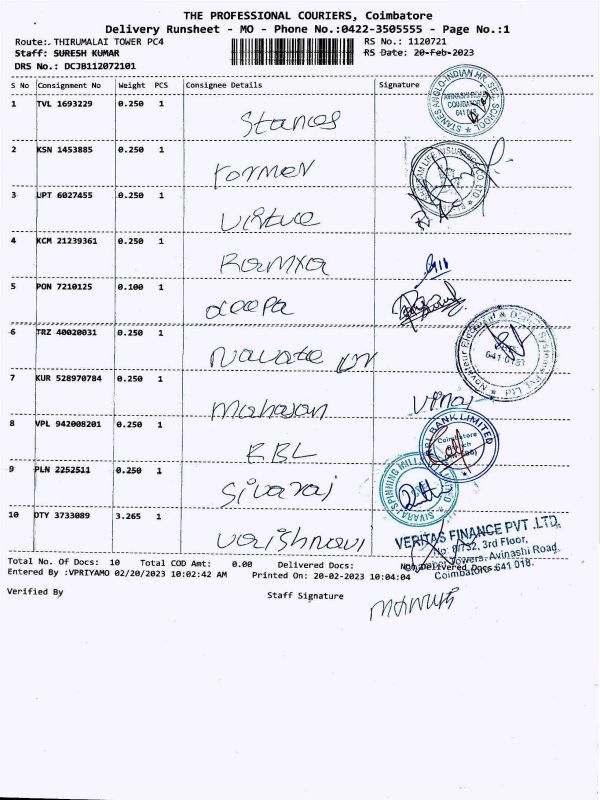 THE PROFESSIONAL COURIERS, Coimbatore
Delivery Runsheet - MO - Phone No.:0422-3505555 - Page No.:1
Route:. THIRUMALAI TOWER PC4 RS No.: 1120721
Staff: SURESH KUMAR RS Date: 20-Feb-2023
DRS No.: DCJB112072101
S No Consignment No Weight PCS Consignee Details Signature
1 TVL 1693229 0.250 1 Stanes
STANES ANGLO-INDIAN HR. SEC. SCHOOL
AVINASHI ROAD
COIMBATORE
641 018
2 KSN 1453885 0.250 1 Former
3 UPT 6027455 0.250 1 Virtue
4 KCM 21239361 0.250 1 Ramya
5 PON 7210125 0.100 1 deepa
6 TRZ 40020031 0.250 1
641 018
7 KUR 528970784 0.250 1 Mahajan
8 VPL 942008201 0.250 1 RBL
RBL BANK LIMITED
Coimbatore
Branch
9 PLN 2252511 0.250 1 Sivaraj
SIVARAJ SPINNING MILLS
10 DTY 3733089 3.265 1 Vaishnavi
VERITAS FINANCE PVT .LTD.
3rd Floor,
Towers, Avinashi Road,
Coimbatore-641 018.
Total No. Of Docs: 10 Total COD Amt: 0.00 Delivered Docs: Not Delivered Docs:
Entered By :VPRIYAMO 02/20/2023 10:02:42 AM Printed On: 20-02-2023 10:04:04
Verified By Staff Signature